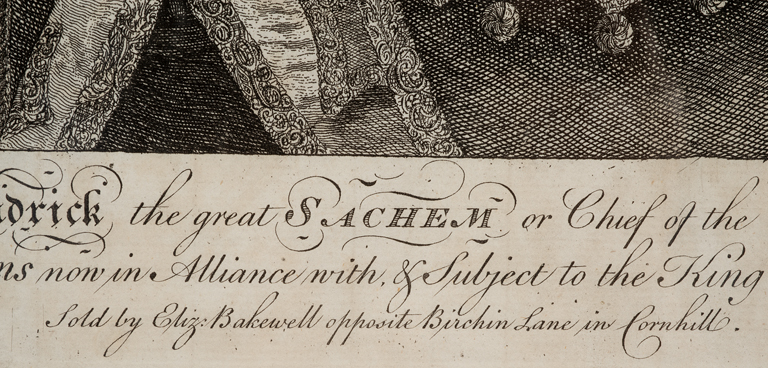 idrick the great SACHEM or Chief of the
ns now in Alliance with, & Subject to the King
Sold by Eliz: Bakewell opposite Birchin Lane in Cornhill.